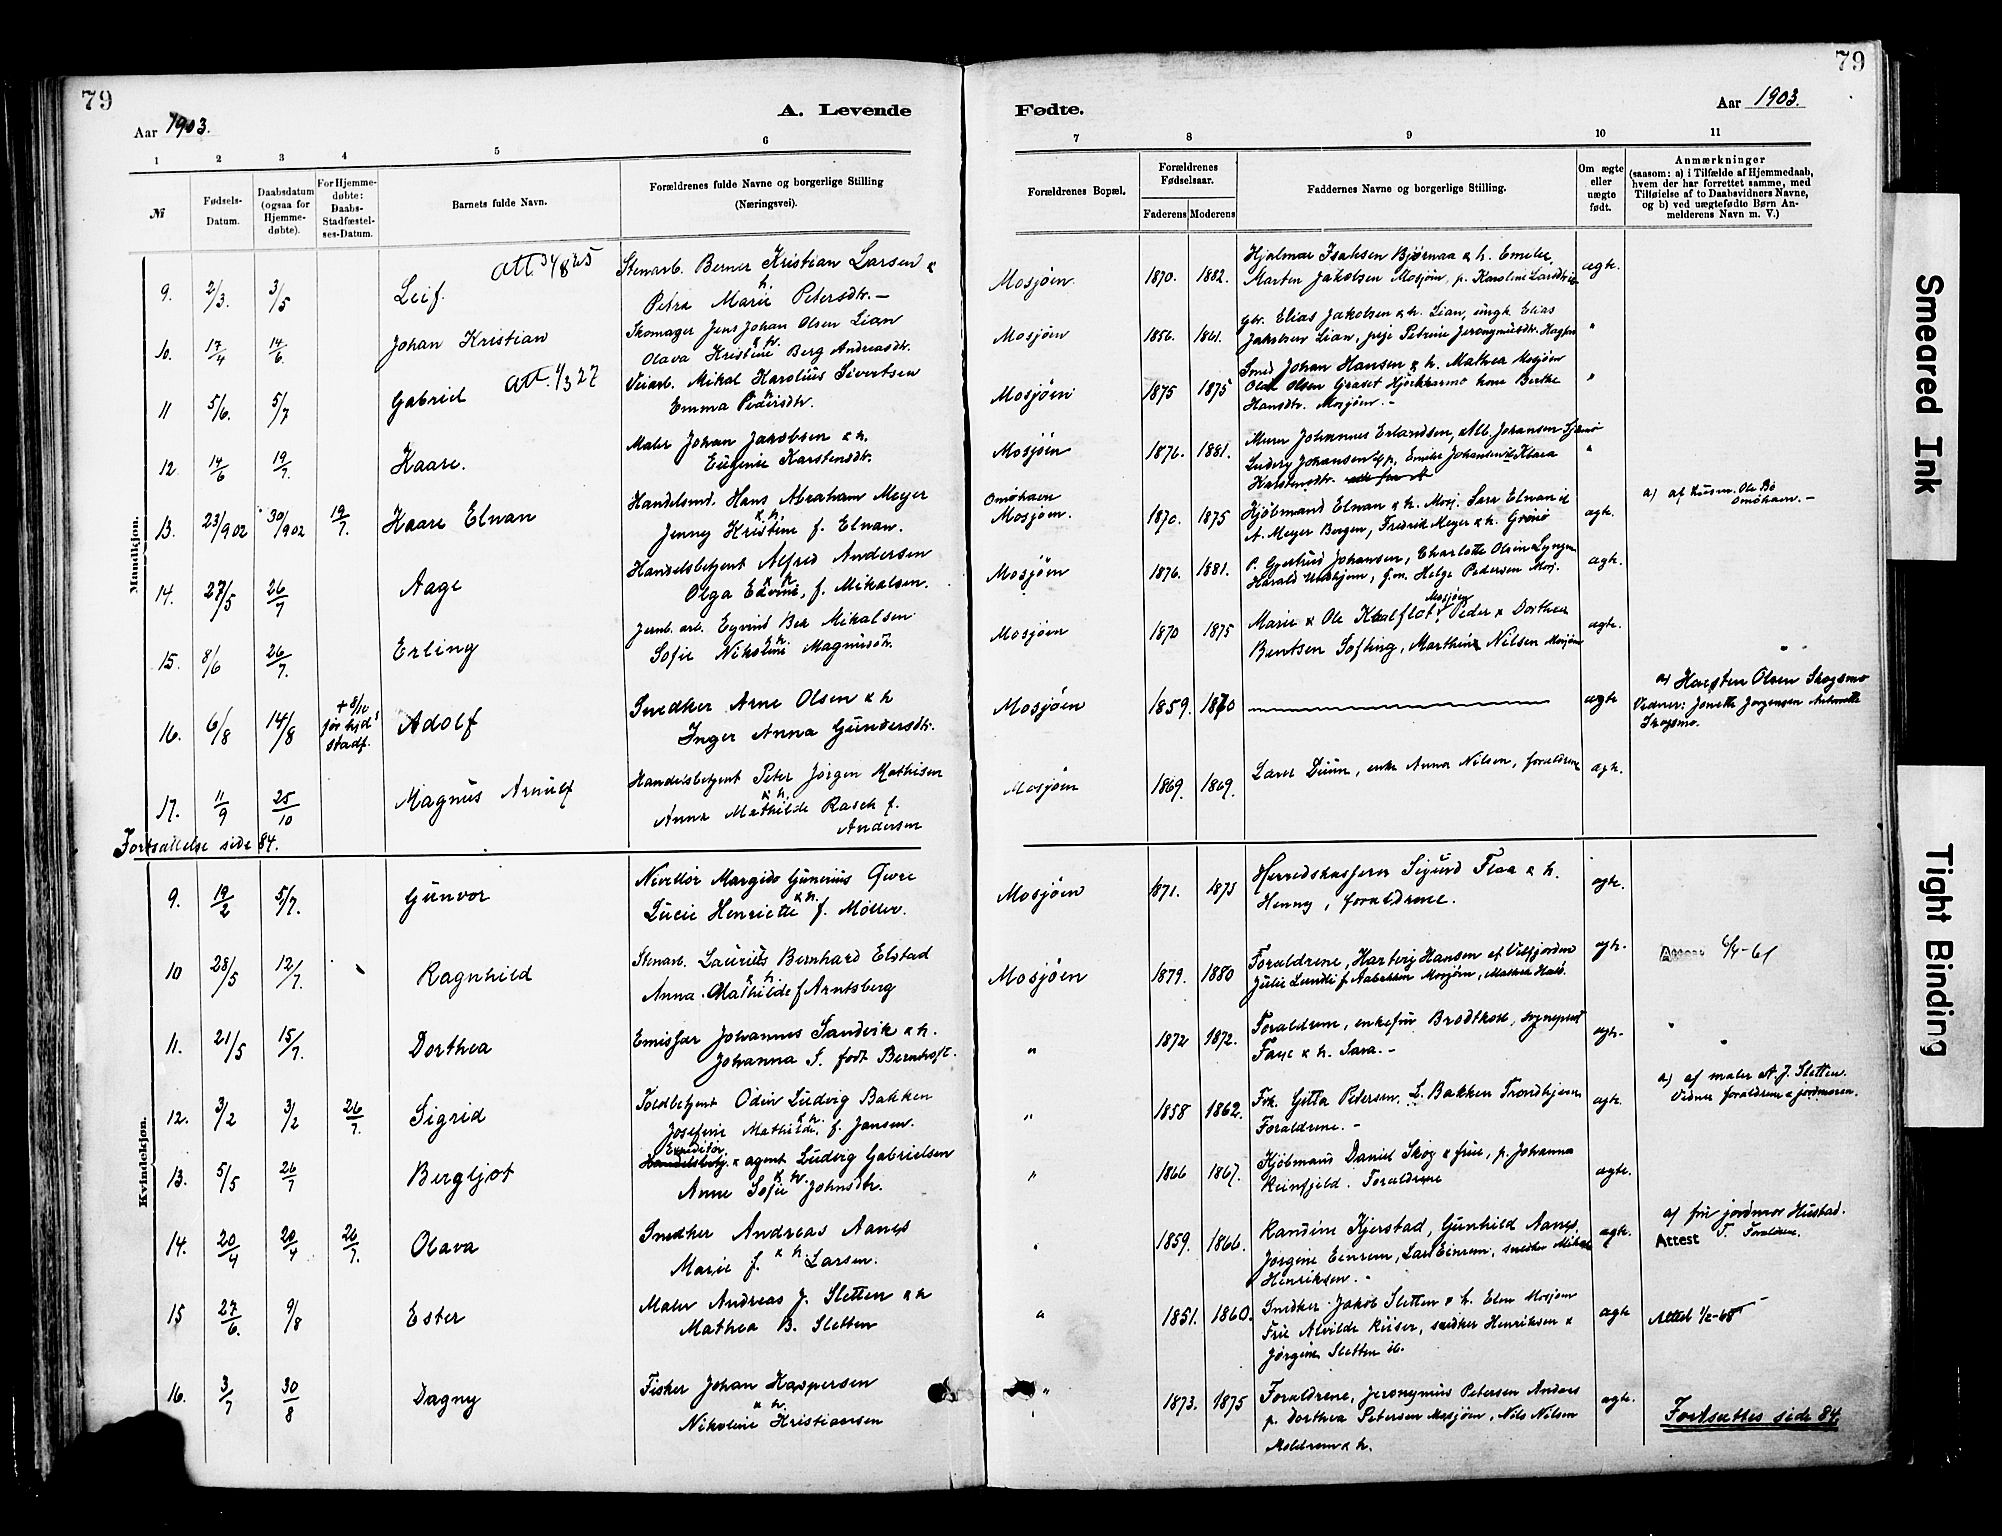 79
79
A. Levende
Fødte.
Aar 1903.
Aar 1903.
1 2 3 4 5 6
7 8 9 10 11
№
Fødsels-Datum.
Daabsdatum (ogsaa for Hjemmedøbte).
For Hjemmedøbte: Daabs-Stadfæstelses-Datum.
Barnets fulde Navn.
Forældrenes fulde Navne og borgerlige Stilling
(Næringsvei).
Forældrenes Bopæl.
Forældrenes Fødselsaar.
Faderens Moderens
Faddernes Navne og borgerlige Stilling.
Om ægte eller uægte født.
Anmærkninger
(saasom: a) i Tilfælde af Hjemmedaab, hvem der har forrettet samme, med Tilføielse af to Daabsvidners Navne, og b) ved uægtefødte Børn Anmelderens Navn m. V.)
Mandkjøn.
9. 2/3. 3/5 Leif. Stenarb. Berner Kristian Larsen &
h. Petra Marie Petersdtr. –
Mosjøen. 1870. 1882. Hjalmar Isaksen Bjørnaa & h. Emelie,
Marten Jakobsen Mosjøen, p. Karoline
ægte.
10. 17/4 14/6. Johan Kristian Skomager Jens Johan Olsen Lian
& h. Olava Kristine Berg Andreasdtr.
Mosjøen 1856. 1861. Gbr. Elias Jakobsen & h. Lian, ungk. Elias
Jakobsen Lian, pige Petrine Jeronymusdtr.
"
11 5/6. 5/7 Gabriel Att. 1/3 27 Veiarb. Mikal Karolius Sivertsen
Emma Pedersdtr.
Mosjøen 1875 1875 Smed Johan Hansen & h. Mathea Mosjøen
Olaf Olsen Hjerkkarmo kone Berthe
Hansdtr. Mosjøen. –
"
12. 14/6 19/7. Kaare. Maler Johan Jakobsen & h.
Eugenie Karstensdtr.
Mosjøen 1876. 1881. Murer Johannes Erlandsen, Alb. Johansen
Ludvig Johansen, p. Emilie Johansen Klara
Karstensdtr.
"
13. 23/9 02 30/9 02 19/7. Kaare Elnan Handelsmd. Hans Abraham Meyer
& h. Jenny Kristine f. Elnan.
Omøhavn
Mosjøen. 1870. 1875 Kjøbmand Elnan & h. Mosj. Sara Elnan
A. Meyer Bergen, Fredrik Meyer & h. Grönö
ægte.
a) af husm. Ole Bø
Omøhavn. –
14. 27/5 26/7 Aage Handelsbetjent Alfred Andersen
& h. Olga Edvine, f. Mikalsen.
Mosjøen 1876. 1881. P. Gjertrud Johansen, Charlotte Olsen Lyngen
Harald, g.m. Helge Pedersen Mosj.
ægte.
15. 8/6 26/7. Erling Jernb. arb. Eyvind Mikalsen
& h. Sofie Nikoline Magnusdtr.
Mosjøen 1870 1875 Marie & Ole Kaalflot, Mosjøen Peder & Dorthea
Bentsen Søfting, Marthine Nilsen Mosjøen
ægte.
16. 6/8 14/8 + 8/10 før hjd! stadf. Adolf Snedker Arne Olsen & h
Inger Anna Gundersdtr.
Mosjøen 1859. 1870 ægte
a) Haagen Olsen Skogsmo
Vidner: Jonette Jørgensen Antonette
Skogsmo.
17. 11/9 25/10 Magnus Arnulf Handelsbetjent Peter Jørgen Mathisen
& h. Anna Mathilde Rasch f.
Andersen
Mosjøen 1869. 1869. Lærer Duun, enke Anna Nilsen, forældrene ægte.
Fortsættelse side 84.
Kvindekjøn.
9. 19/2 5/7. Gunvor Nivellør Margido Gunerius Qvre
& h. Lucie Henriette f. Møller.
Mosjøen 1871. 1875 Herredskasserer Sigurd Flaa & h.
Henny, forældrene.
ægte.
10 28/5 12/7. Ragnhild Stenarb. Laurius Bernhard Elstad
& h. Anna Mathilde f Arntsberg
Mosjøen 1879. 1880 Forældrene, Hartvig Hansen af Velfjorden
Julie Lundli f. Mosjøen, Mathea
ægte.
6/4-61
11. 21/5 15/7. Dorthea Emissær Johannes Sandvik & h.
Johanna S. født Bernhoft.
" 1872 1872. Forældrene, enkefru Brodtkorb, sogneprest
Faye & h. Sara. –
ægte.
12. 3/2 3/2 26/7. Sigrid Toldbetjent Odin Ludvig Bakken
& h. Josefine Mathilde, f. Jansen.
" 1858 1862. Frk. Gitta Petersen. L. Bakken Trondhjem
Forældrene. –
ægte.
a) af maler A. J. Sletten.
Vidner forældrene & jordmoren.
13. 5/5 26/7 Bergljot Expeditør
Handelsbetj. & agent Ludvig Gabrielsen
& h. Anne Sofie Johnsdtr.
" 1866 1867. Kjøbmand Daniel Skog & frue, p. Johanna
Reinfjeld. Forældrene
ægte.
14. 20/4 20/4 26/7. Olava Snedker Andreas Aanes
& h. Marie f. Larsen.
" 1859. 1866. Randine Kjerstad, Gunhild Aanes,
Jørgine Einrem, Lars Einrem, snedker Mikal
Henriksen. –
ægte.
a) fru jordmor Hustad.
Attest T. Forældrene.
15 27/6. 9/8 Ester Maler Andreas J. Sletten & h
Mathea B. Sletten
" 1851. 1860. Snedker Jakob Sletten & h. Elen Mosjøen
Frue Alvilde Riiser, snedker Henriksen &
Jørgine Sletten ib.
ægte
Attest 1/2-68
16. 3/7 30/8 Dagny Fisker Johan Kaspersen
& h. Nikoline Kristiansen
" 1873. 1875 Forældrene, Jeronymus Petersen Andaas
p. Dorthea Petersen Mosjøen, Nils Nilsen
Meldrem & h.
ægte.
Fortsættes side 84.
Smeared Ink
Tight Binding